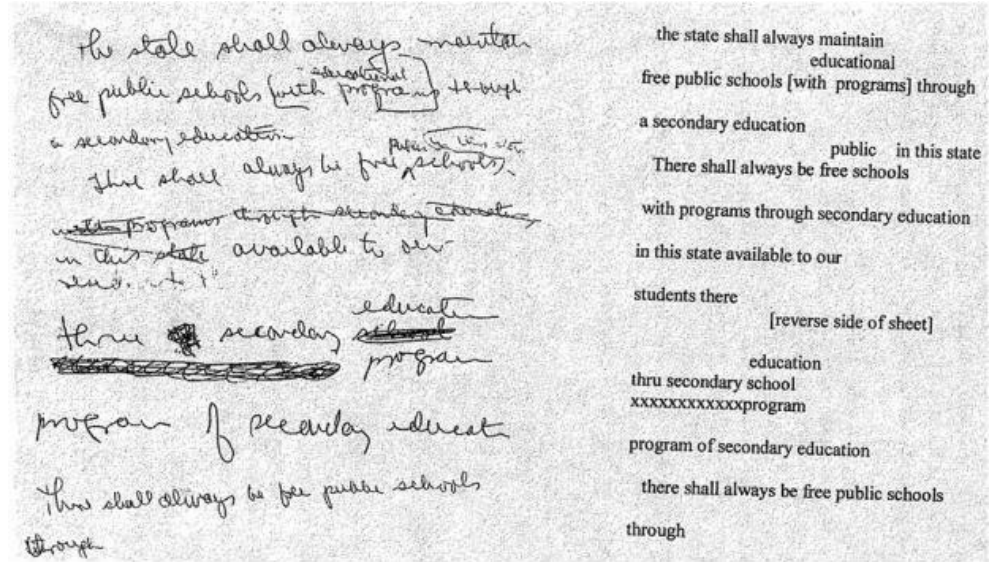 the state shall always maintain
educational
free public schools [with programs] through
a secondary education
public in this state
There shall always be free schools,
with programs through secondary education
in this state available to our
education
thru secondary school
program
program of secondary educat
There shall always be free public schools
through
the state shall always maintain
educational
free public schools [with programs] through
a secondary education
public in this state
There shall always be free schools
with programs through secondary education
in this state available to our
students there
[reverse side of sheet]
education
thru secondary school
xxxxxxxxxxxxprogram
program of secondary education
there shall always be free public schools
through